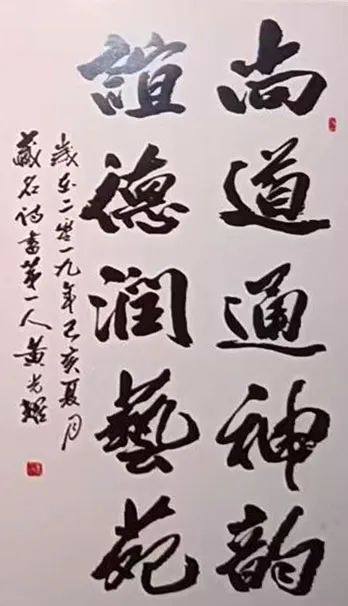 尚道通神韵
谊德润藝苑
歲在二零一九年己亥夏月
藏名诗書第一人黄光耀